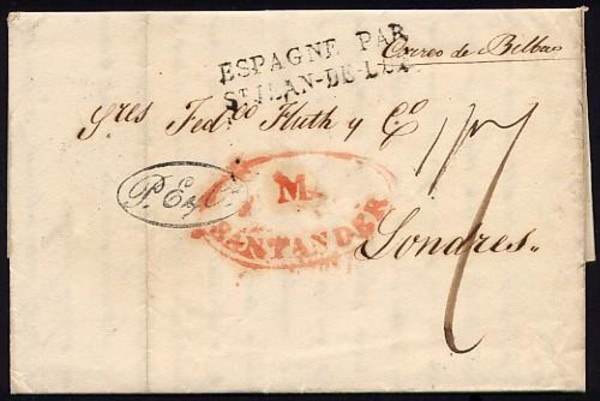 ESPAGNE PAR
ST JEAN-DE-LUZ
Correo de Bilbao
Sres Fedco Huth y Co
M.
SANTANDER
Londres.